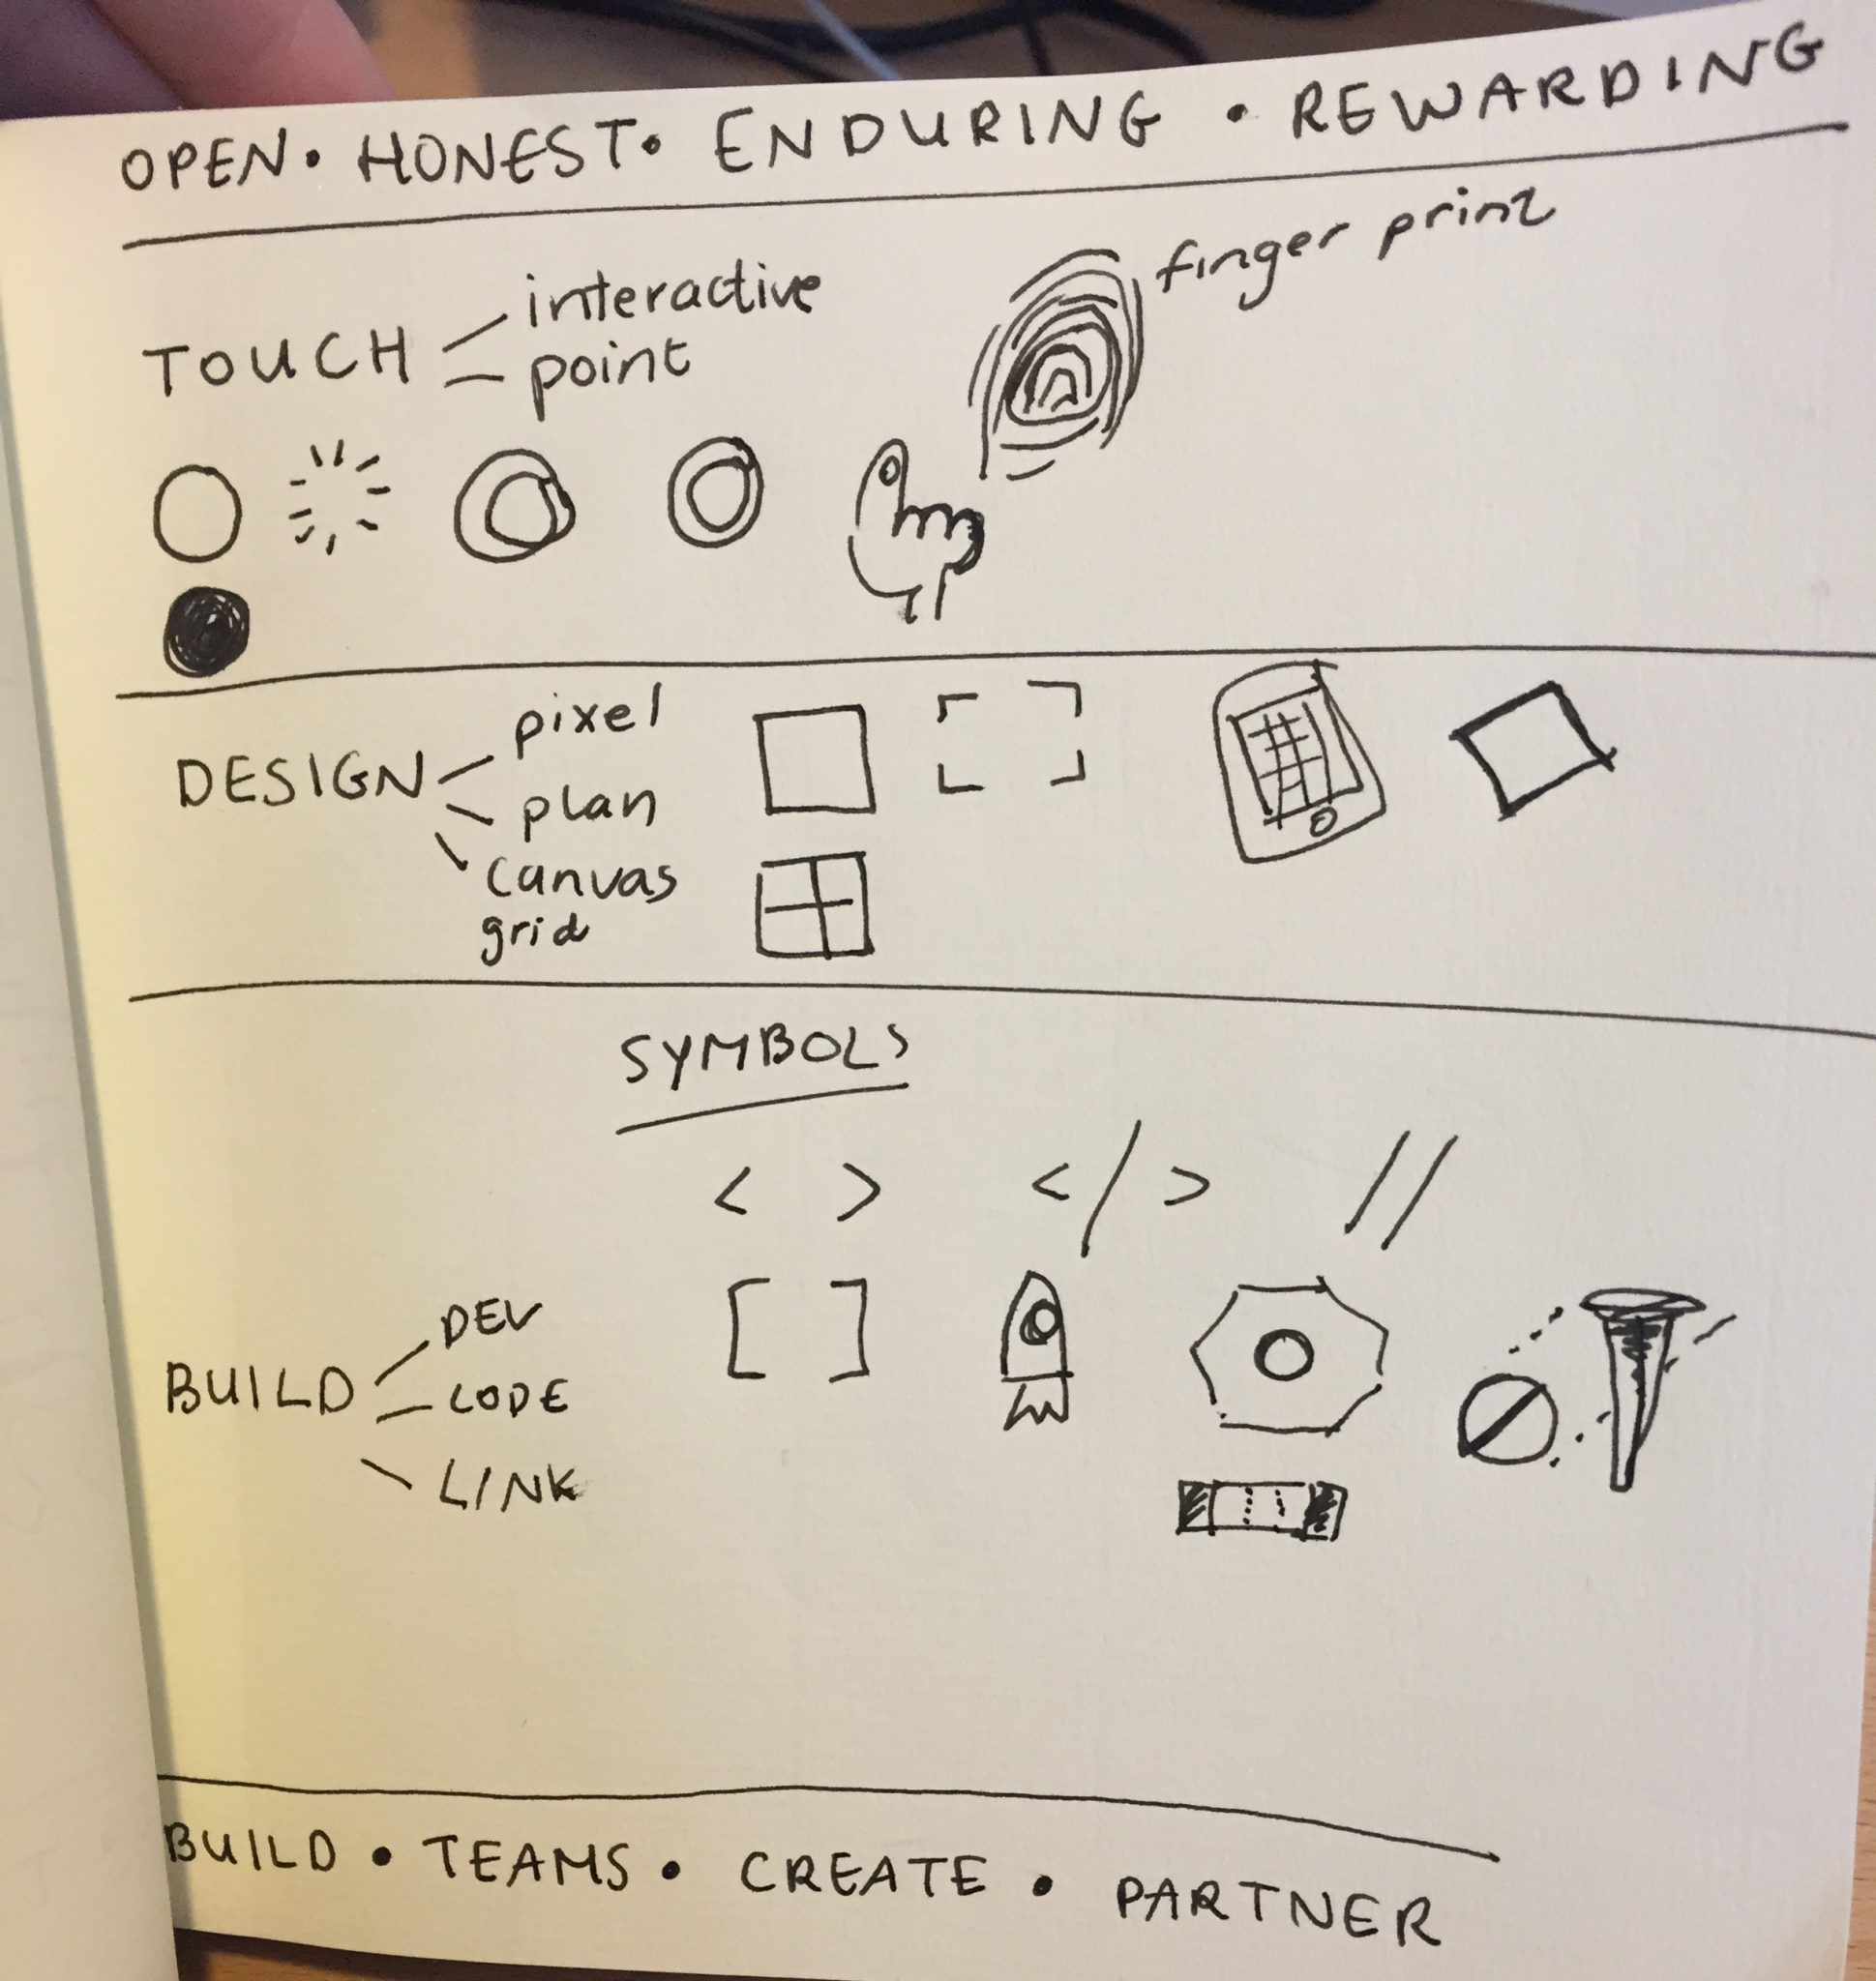 OPEN • HONEST • ENDURING • REWARDING
finger print
TOUCH
interactive
point
DESIGN
pixel
plan
canvas
grid
SYMBOLS
< > </> //
[ ]
BUILD
DEV
CODE
LINK
BUILD • TEAMS • CREATE • PARTNER